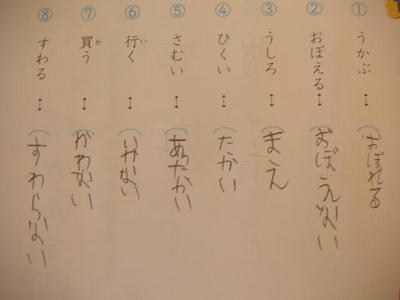 ① うかぶ ↔ (おぼれる)
② おぼえる ↔ (おぼえない)
③ うしろ ↔ (まえ)
④ ひくい ↔ (たかい)
⑤ さむい ↔ (あたかい)
⑥ 行く ↔ (いかない)
⑦ 買う ↔ (かわない)
⑧ すわる ↔ (すわらない)